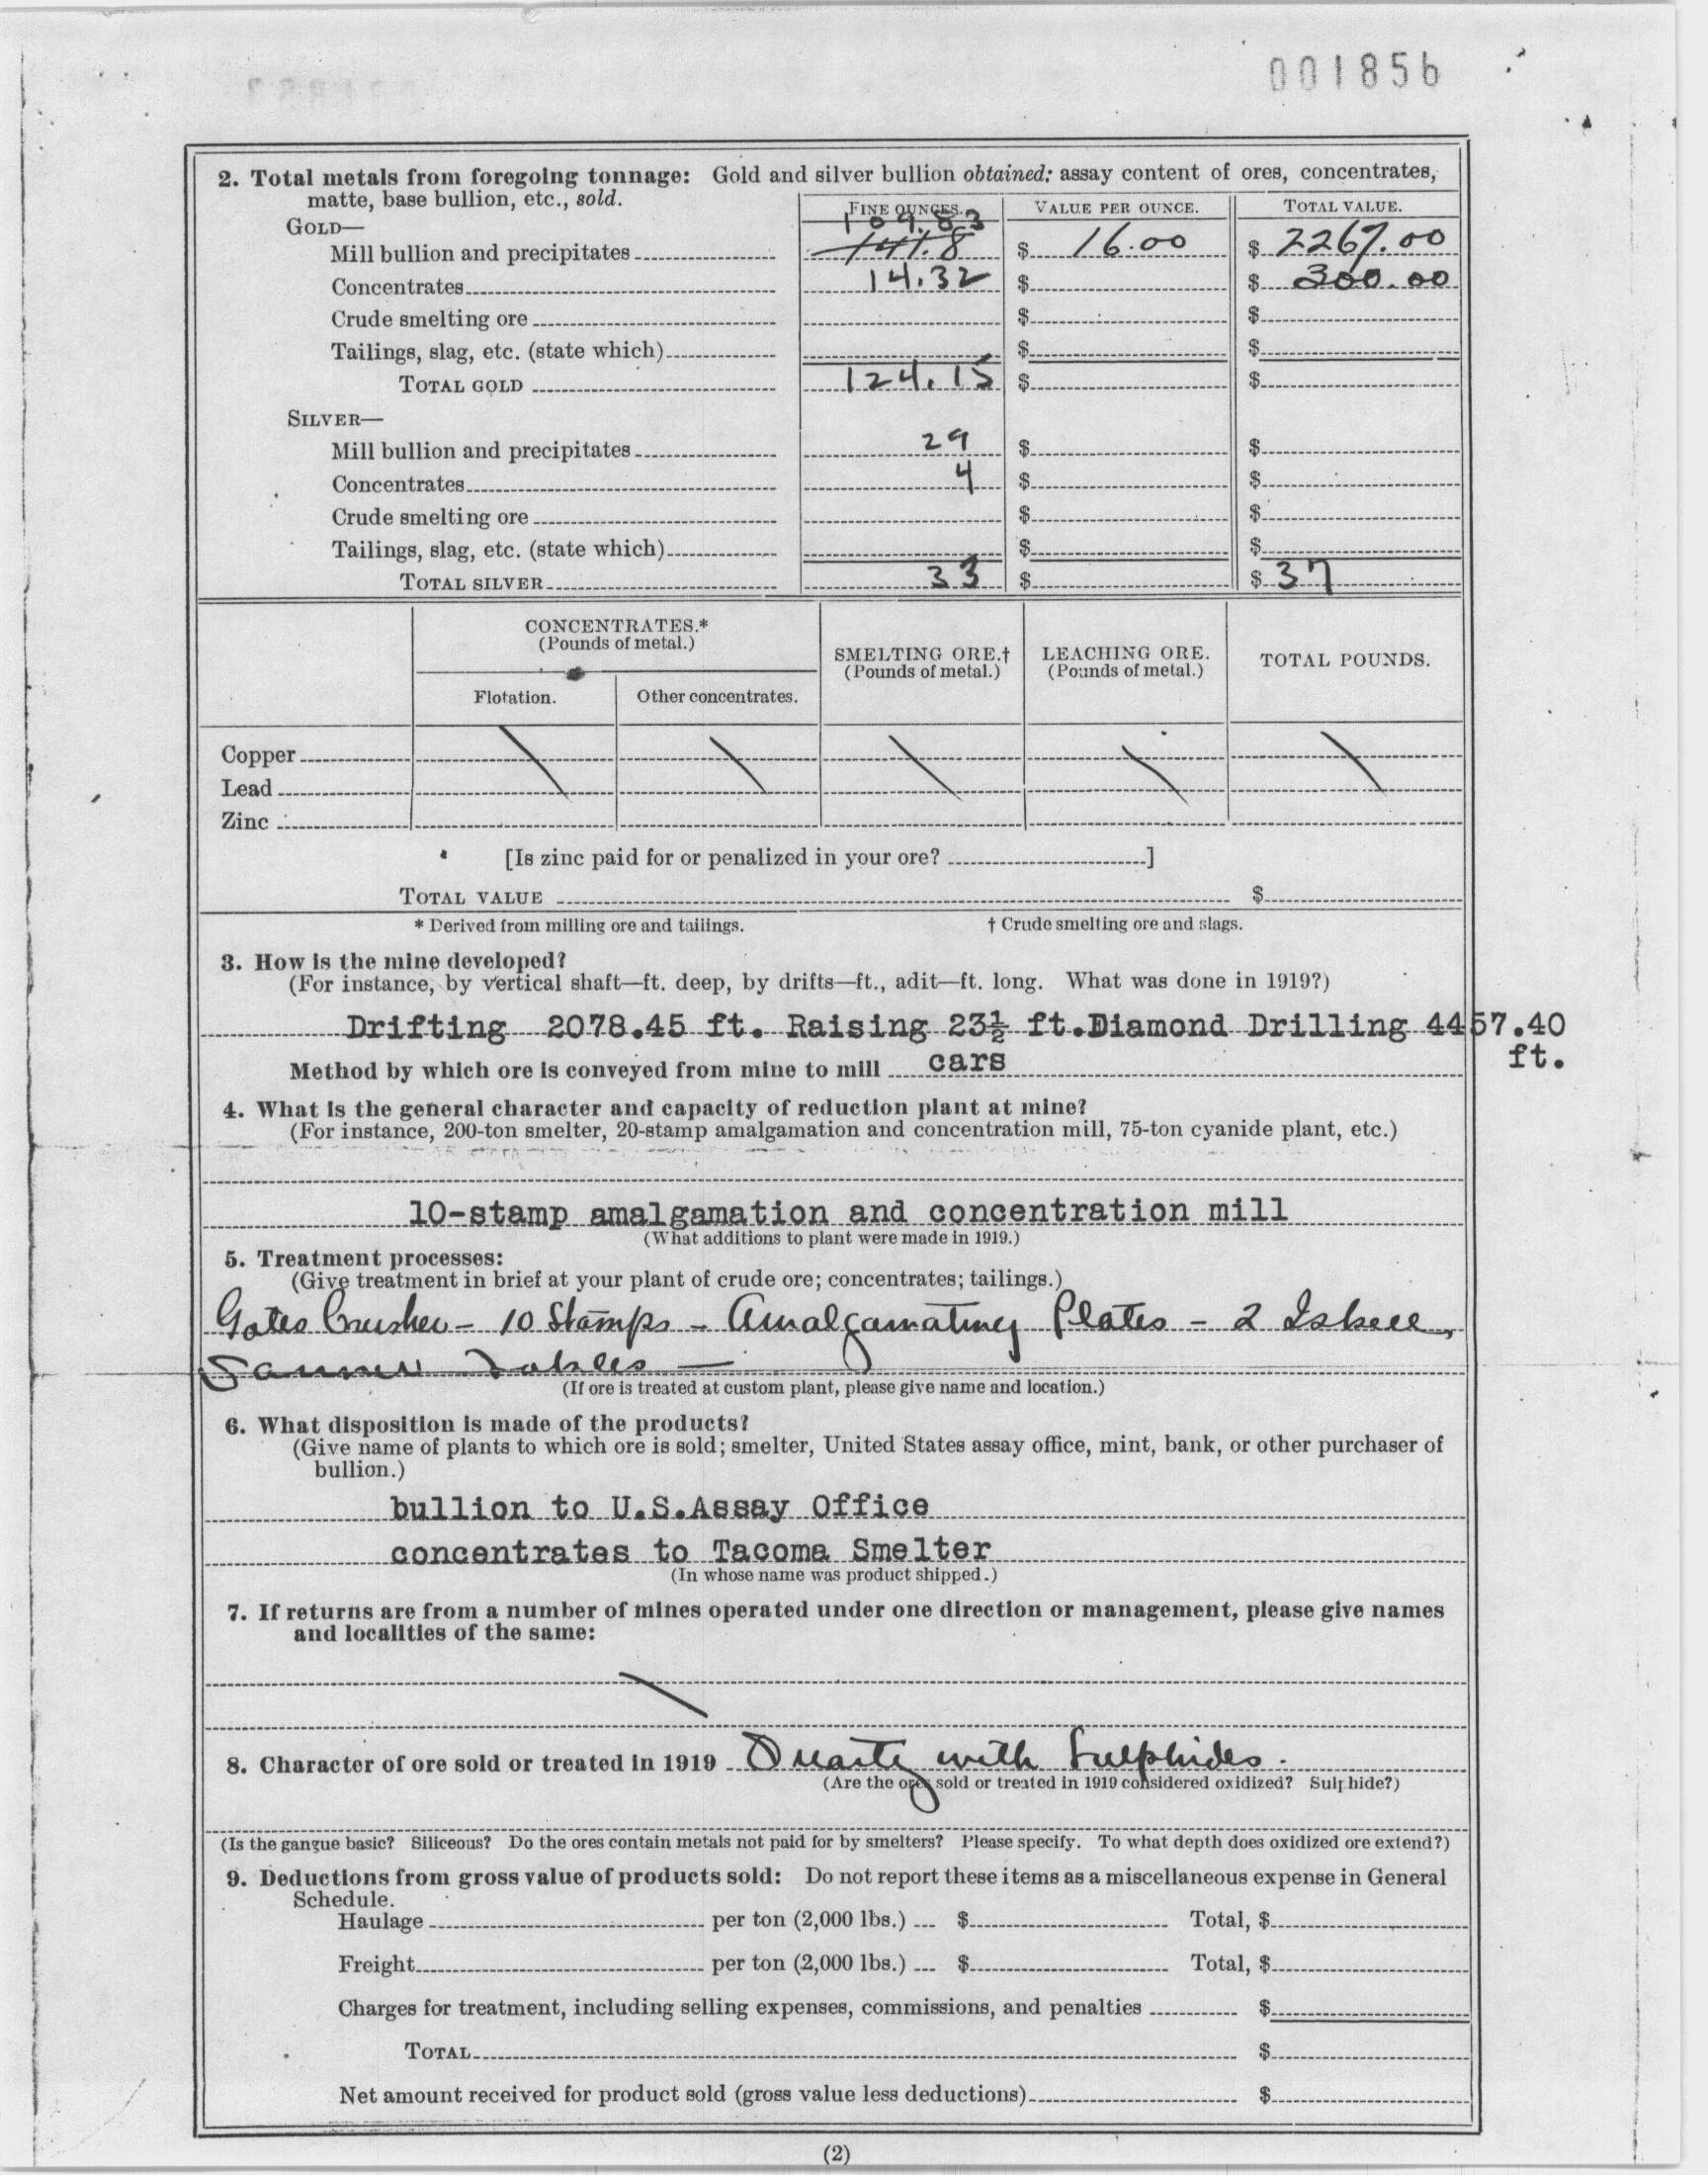 001856
2. Total metals from foregoing tonnage: Gold and silver bullion obtained; assay content of ores, concentrates,
matte, base bullion, etc., sold.
FINE OUNCES. VALUE PER OUNCE. TOTAL VALUE.
109.83
GOLD—
Mill bullion and precipitates 141.8 $ 16.00 $ 2267.00
Concentrates 14.32 $ $ 300.00
Crude smelting ore $ $
Tailings, slag, etc. (state which) $ $
TOTAL GOLD 124.15 $ $
SILVER—
Mill bullion and precipitates 29 $ $
Concentrates 4 $ $
Crude smelting ore $ $
Tailings, slag, etc. (state which) $ $
TOTAL SILVER 33 $ $ 37
CONCENTRATES.*
(Pounds of metal.)
SMELTING ORE.†
(Pounds of metal.)
LEACHING ORE.
(Pounds of metal.)
TOTAL POUNDS.
Flotation. Other concentrates.
Copper
Lead
Zinc
[Is zinc paid for or penalized in your ore? ]
TOTAL VALUE $
* Derived from milling ore and tailings. † Crude smelting ore and slags.
3. How is the mine developed?
(For instance, by vertical shaft—ft. deep, by drifts—ft., adit—ft. long. What was done in 1919?)
Drifting 2078.45 ft. Raising 23½ ft.Diamond Drilling 4457.40
ft.
Method by which ore is conveyed from mine to mill cars
4. What is the general character and capacity of reduction plant at mine?
(For instance, 200-ton smelter, 20-stamp amalgamation and concentration mill, 75-ton cyanide plant, etc.)
10-stamp amalgamation and concentration mill
(What additions to plant were made in 1919.)
5. Treatment processes:
(Give treatment in brief at your plant of crude ore; concentrates; tailings.)
Gates Crusher - 10 Stamps - Amalgamating Plates - 2
Tables —
(If ore is treated at custom plant, please give name and location.)
6. What disposition is made of the products?
(Give name of plants to which ore is sold; smelter, United States assay office, mint, bank, or other purchaser of
bullion.)
bullion to U.S.Assay Office
concentrates to Tacoma Smelter
(In whose name was product shipped.)
7. If returns are from a number of mines operated under one direction or management, please give names
and localities of the same:
8. Character of ore sold or treated in 1919 Quartz with Sulphides.
(Are the ores sold or treated in 1919 considered oxidized? Sulphide?)
(Is the gangue basic? Siliceous? Do the ores contain metals not paid for by smelters? Please specify. To what depth does oxidized ore extend?)
9. Deductions from gross value of products sold: Do not report these items as a miscellaneous expense in General
Schedule.
Haulage per ton (2,000 lbs.) $ Total, $
Freight per ton (2,000 lbs.) $ Total, $
Charges for treatment, including selling expenses, commissions, and penalties $
TOTAL $
Net amount received for product sold (gross value less deductions) $
(2)